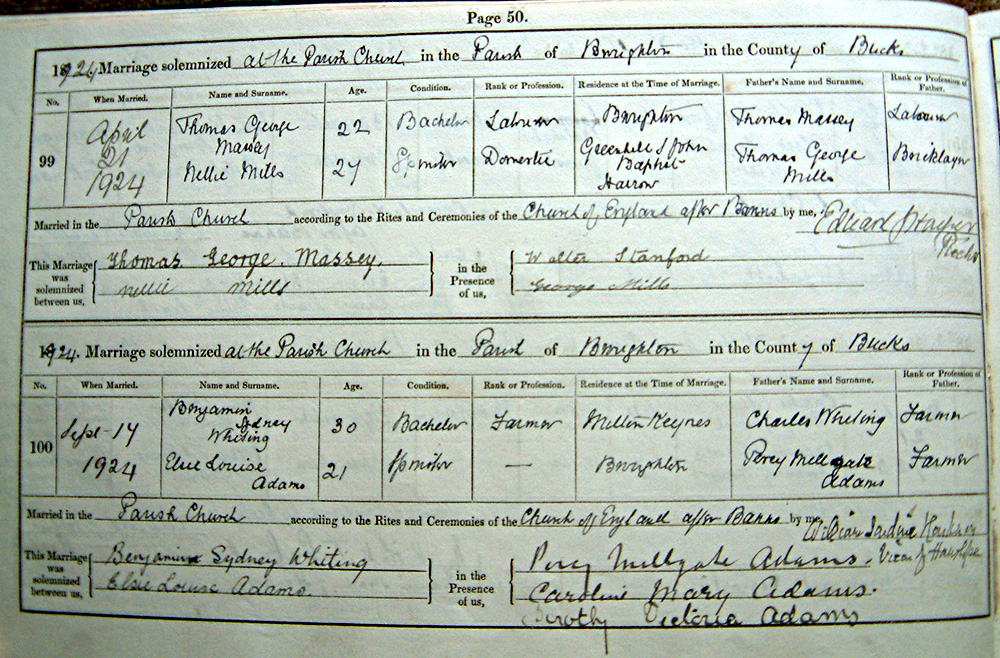 Page 50.
1924 Marriage solemnized at the Parish Church in the Parish of Broughton in the County of Bucks
No. When Married. Name and Surname. Age. Condition. Rank or Profession. Residence at the Time of Marriage. Father's Name and Surname. Rank or Profession of Father.
99 April 21 1924 Thomas George Massey 22 Bachelor Labourer Broughton Thomas Massey Labourer
Nellie Mills 27 Spinster Domestic Greenhill S John Baptist Harrow Thomas George Mills Bricklayer
Married in the Parish Church according to the Rites and Ceremonies of the Church of England after Banns by me, Edward Rector
This Marriage was solemnized between us, Thomas George Massey. in the Presence of us, Walter Stanford
Nellie Mills George Mills
1924. Marriage solemnized at the Parish Church in the Parish of Broughton in the County of Bucks
No. When Married. Name and Surname. Age. Condition. Rank or Profession. Residence at the Time of Marriage. Father's Name and Surname. Rank or Profession of Father.
100 Sept-14 1924 Benjamin Sydney Whiting 30 Bachelor Farmer Milton Keynes Charles Whiting Farmer
Elsie Louise Adams 21 Spinster — Broughton Percy Millgate Adams Farmer
Married in the Parish Church according to the Rites and Ceremonies of the Church of England after Banns by me, William Vicar of Hanslope
This Marriage was solemnized between us, Benjamin Sydney Whiting in the Presence of us, Percy Millgate Adams.
Elsie Louise Adams. Caroline Mary Adams.
Dorothy Victoria Adams